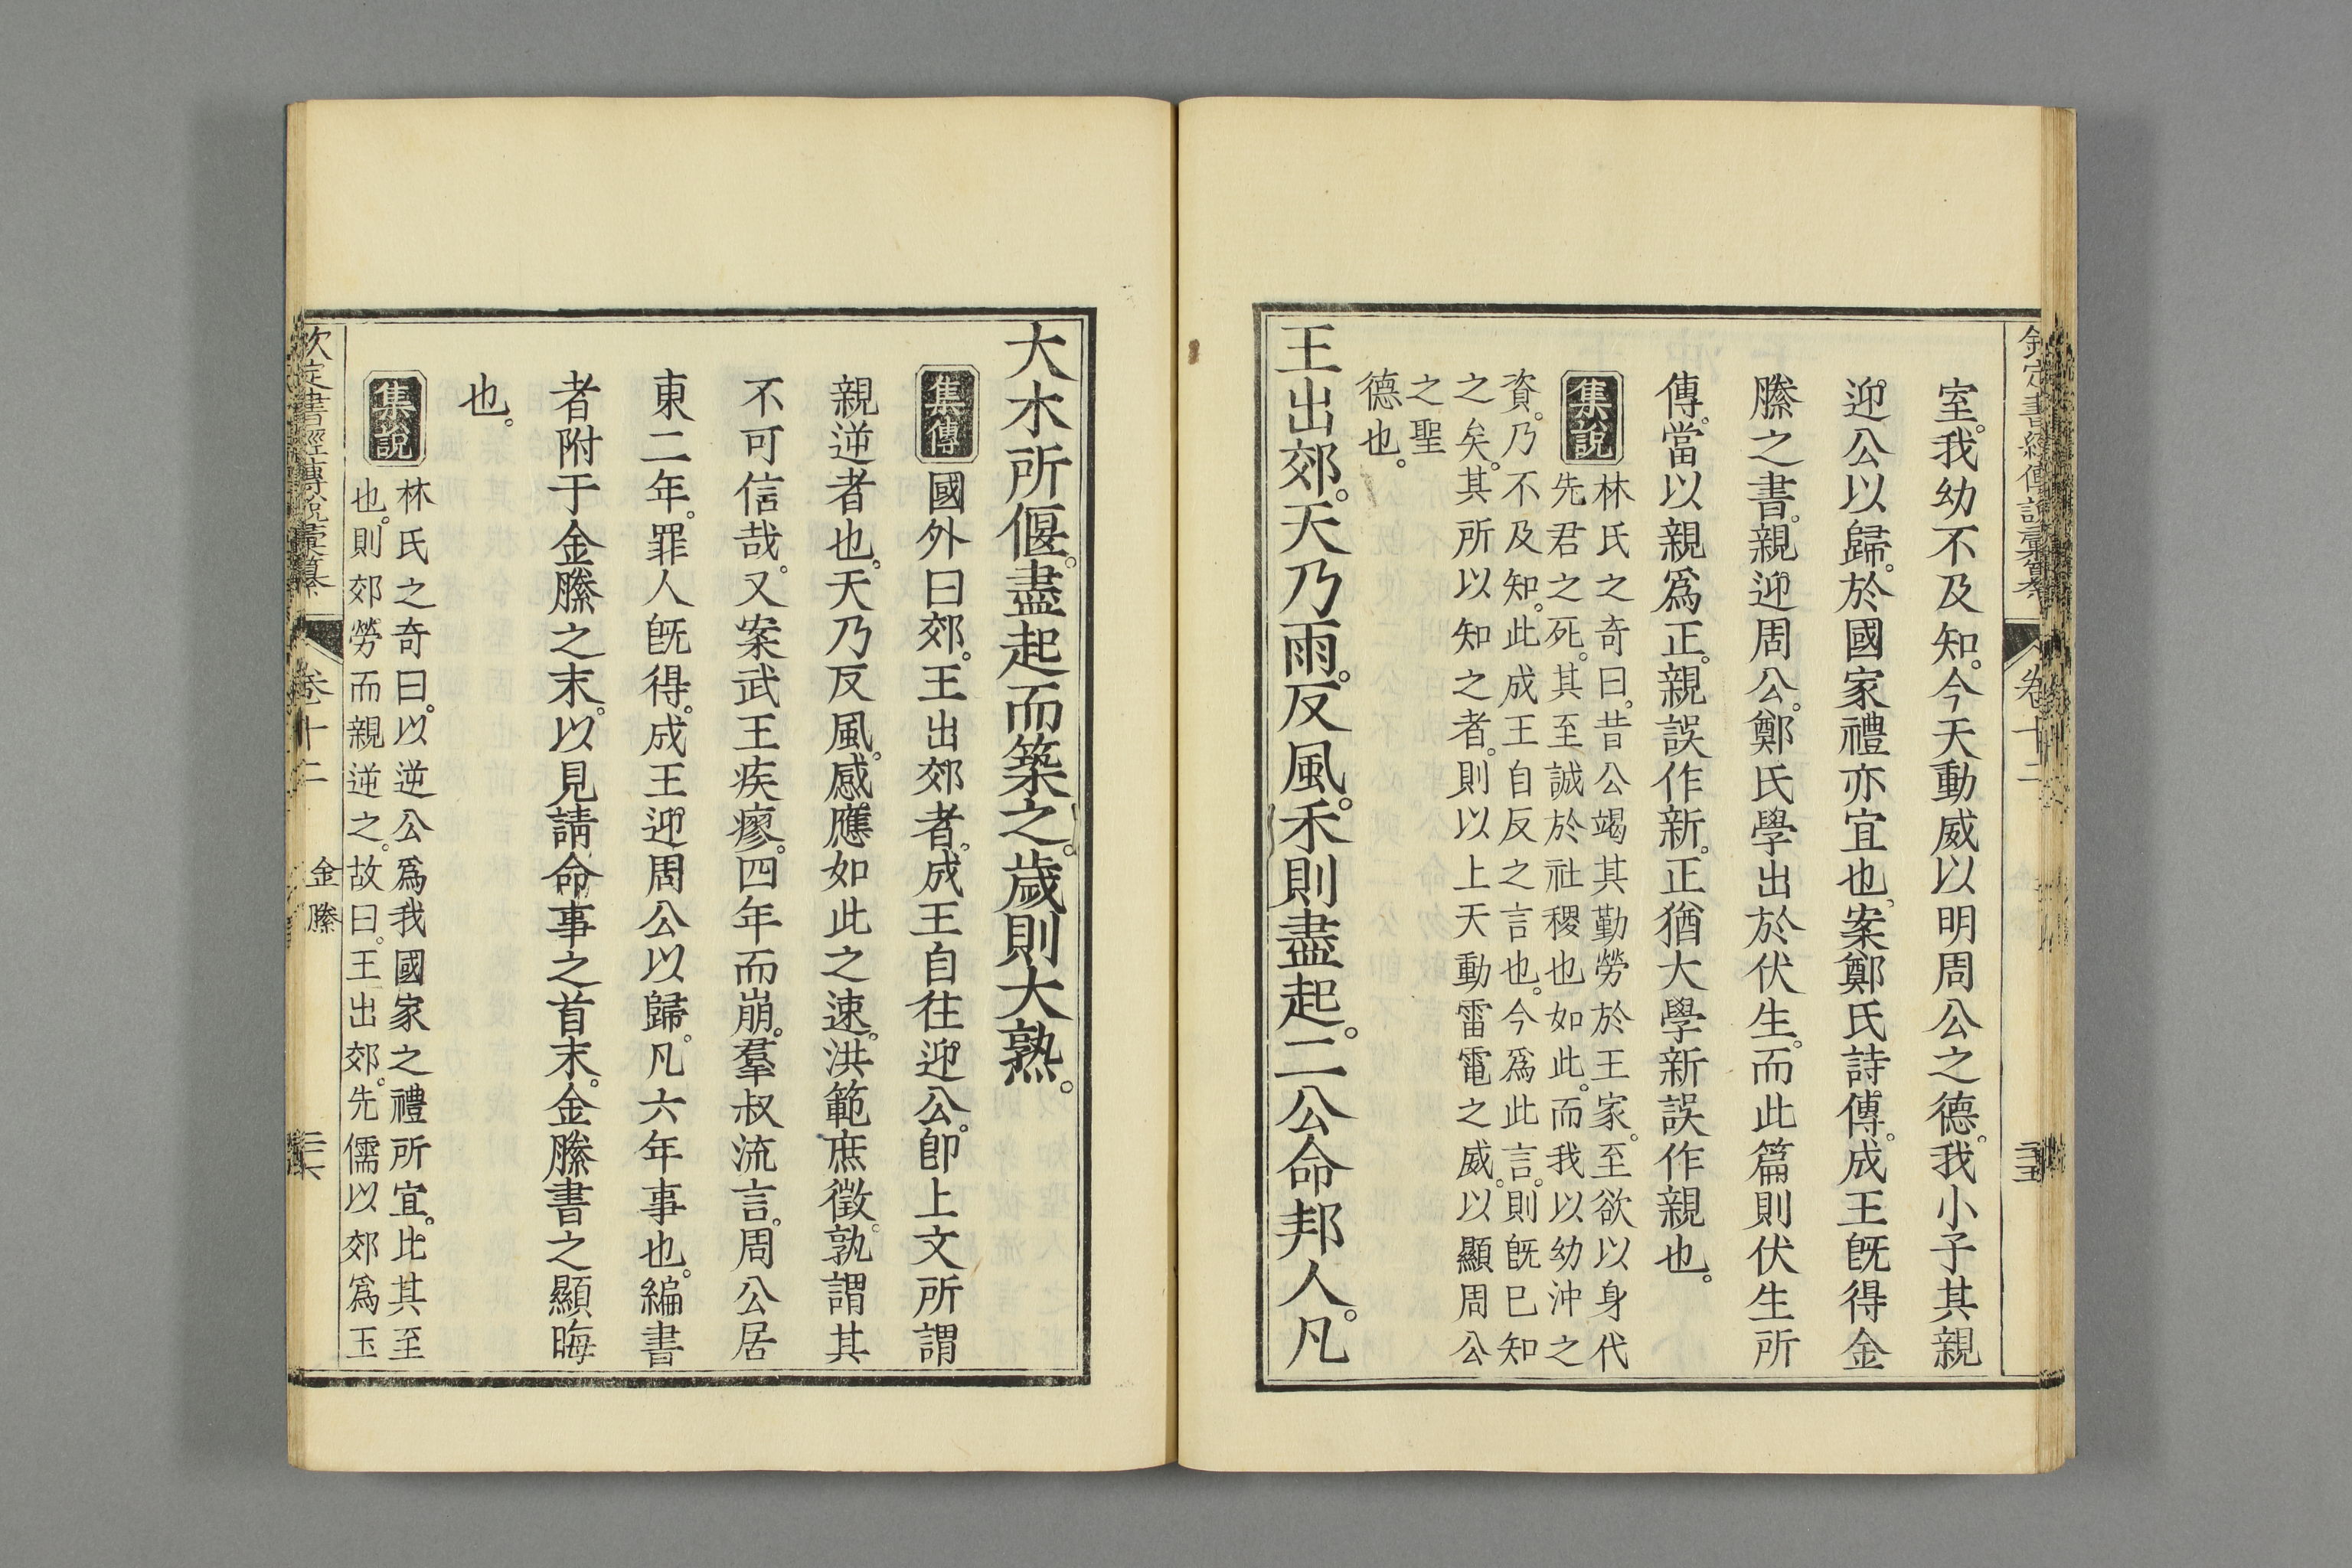 欽定書經傳說彙纂 卷十二
室。我幼不及知。今天動威以明周公之德。我小子其親
迎公以歸。於國家禮亦宜也。案鄭氏詩傳。成王旣得金
縢之書。親迎周公。鄭氏學出於伏生。而此篇則伏生所
傳。當以親爲正。親誤作新。正猶大學新誤作親也。
集說 林氏之奇曰。昔公竭其勤勞於王家。至欲以身代
先君之死。其至誠於社稷也如此。而我以幼沖之
資。乃不及知。此成王自反之言也。今爲此言。則旣已知
之矣。其所以知之者。則以上天動雷電之威。以顯周公
之聖
德也。
王出郊。天乃雨。反風。禾則盡起。二公命邦人。凡
大木所偃。盡起而築之。歲則大熟。
集傳 國外曰郊。王出郊者。成王自往迎公。卽上文所謂
親逆者也。天乃反風。感應如此之速。洪範庶徵。孰謂其
不可信哉。又案武王疾瘳。四年而崩。羣叔流言。周公居
東二年。罪人旣得。成王迎周公以歸。凡六年事也。編書
者附于金縢之末。以見請命事之首末。金縢書之顯晦
也。
集說 林氏之奇曰。以逆公爲我國家之禮所宜。比其至
也。則郊勞而親逆之。故曰。王出郊。先儒以郊爲玉
欽定書經傳說彙纂 卷十二 金縢 三十六